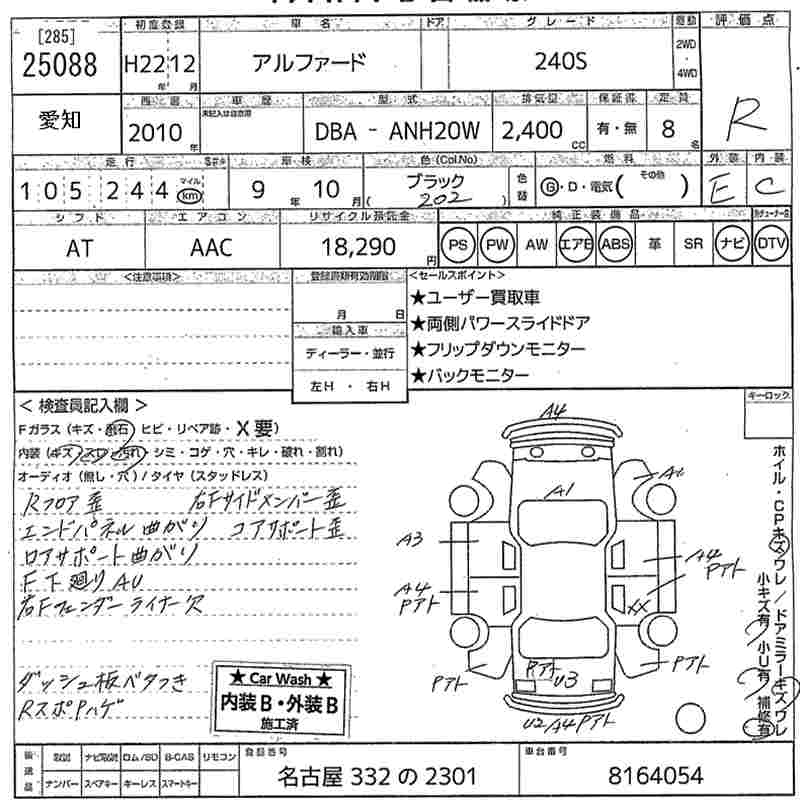 [285]
25088
愛知
初度登録 車名 ドア グレード 駆動 評価点
H22 12 アルファード 240S 2WD・4WD R
年 月
西暦 車歴 型式 排気量 保証書 定員
未記入は自家用
2010年 DBA - ANH20W 2,400CC 有・無 8名
走行 車検 色(Col.No) 燃料 外装 内装
105244 マイル km 9年 10月 ブラック ( 202 ) 色替 G・D・電気( その他 ) E C
シフト エアコン リサイクル預託金 純正装備品
AT AAC 18,290円 PS PW AW エアB ABS 革 SR ナビ DTV
<注意事項> 登録書類有効期限 <セールスポイント>
月 日
輸入車
ディーラー・並行
左H ・ 右H
★ユーザー買取車
★両側パワースライドドア
★フリップダウンモニター
★バックモニター
キーロック
< 検査員記入欄 >
Fガラス(キズ・飛石 ヒビ・リペア跡・X要)
内装(キズ・スレ・汚れ・シミ・コゲ・穴・キレ・破れ・割れ)
オーディオ(無し・穴)/タイヤ(スタッドレス)
Rフロア歪 右Fサイドメンバー歪
エンドパネル曲がり コアサポート歪
ロアサポート曲がり
F下廻りAU
右Fフェンダーライナー欠
ダッシュ板ベタつき
RスポPハゲ
★ Car Wash ★
内装B・外装B
施工済
A4
A1
A3
A4
Pアト
A4
Pアト
XX
Pアト
Pアト
U3
Pアト
U2/A4 Pアト
ホイル・CPキズワレ/ドアミラーキズワレ
小キズ有 小U有 補修有
後送品 取説 ナビ取説 ロム/SD B-CAS リモコン
ナンバー スペアキー キーレス スマートキー
登録番号
名古屋 332 の 2301
車台番号
8164054